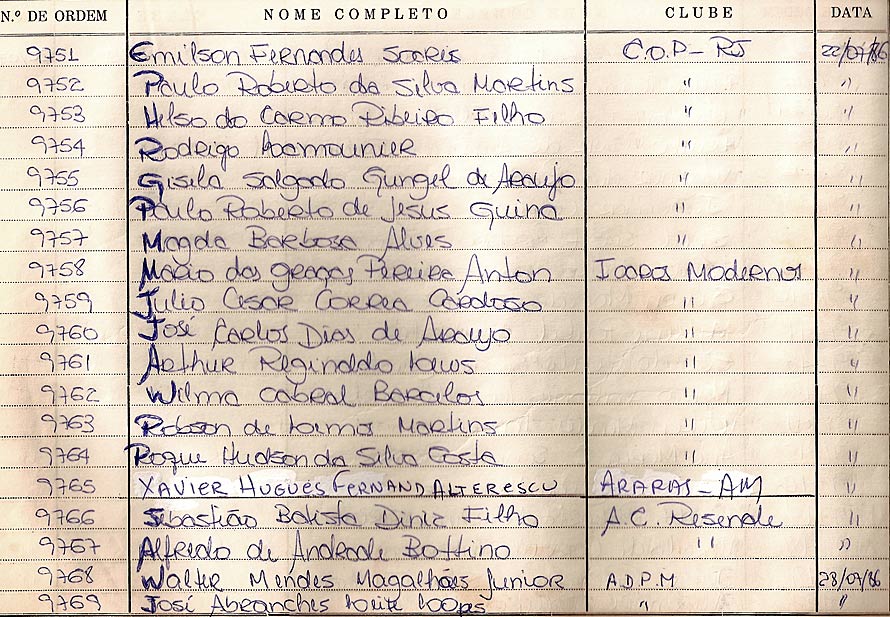 N.º DE ORDEM NOME COMPLETO CLUBE DATA
9751 Emilson Fernandes Soares C.O.P-RJ 22/07/86
9752 Paulo Roberto da Silva Martins " "
9753 Helso do Carmo Ribeiro Filho " "
9754 Rodrigo " "
9755 Gisela Salgado Gurgel de Araujo " "
9756 Paulo Roberto de Jesus Guina " "
9757 Magda Barbosa Alves " "
9758 das graças Pereira Anton Icaros Modernos "
9759 Julio Cesar Correa Cardoso " "
9760 José Carlos Dias de Araujo " "
9761 Arthur Reginaldo " "
9762 Wilma Cabral Barcelos " "
9763 Robson de Lemos Martins " "
9764 Roque Hudson da Silva Costa " "
9765 XAVIER HUGUES FERNAND ALTERESCU ARARAS-AM "
9766 Sebastião Batista Diniz Filho A.C. Resende "
9767 Alfredo de Andrade Bottino " "
9768 Walter Mendes Magalhães Junior A.D.P.M 28/07/86
9769 José Abranches Leite " "